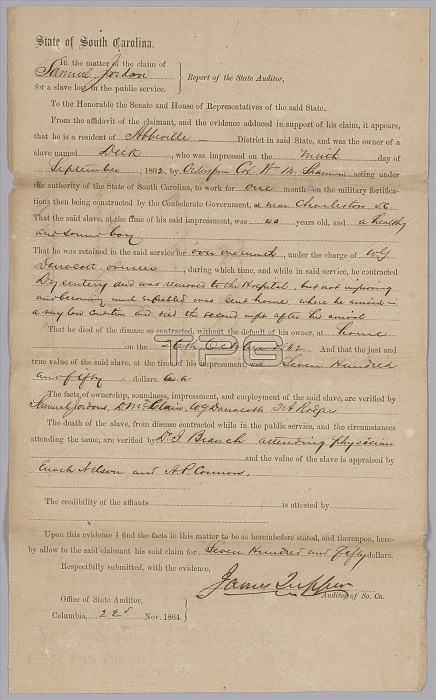 State of South Carolina.
In the matter of the claim of
Samuel Jordon
for a slave lost in the public service.
Report of the State Auditor,
To the Honorable the Senate and House of Representatives of the said State.
From the affidavit of the claimant, and the evidence adduced in support of his claim, it appears,
that he is a resident of Abbeville District in said State, and was the owner of a
slave named Dick, who was impressed on the day of
September, 1862, by Col. Wm M. Shannon acting under
the authority of the State of South Carolina, to work for one month on the military fortifica-
tions then being constructed by the Confederate Government, at near Charleston SC
That the said slave, at the time of his said impressment, was 40 years old, and a healthy
and sound boy
That he was retained in the said service for over one month, under the charge of W G
, during which time, and while in said service, he contracted
Dysentery and was removed to the Hospital, but not improving
and becoming much enfeebled was sent home where he arrived in
a very low condition and died the second night after his arrival
That he died of the disease so contracted, without the default of his owner, at home
on the October 1862. And that the just and
true value of the said slave, at the time of his impressment, was Seven Hundred
and fifty dollars
TPG
The facts of ownership, soundness, impressment, and employment of the said slave, are verified by
Samuel Jordons, D. McClain, W G T A Rodgers
The death of the slave, from disease contracted while in the public service, and the circumstances
attending the same, are verified by Dr. J Branch attending physician
and the value of the slave is appraised by
Enoch Nelson and A. P. Connors.
The credibility of the affiants is attested by
Upon this evidence I find the facts in this matter to be as hereinbefore stated, and thereupon, here-
by allow to the said claimant his said claim for Seven Hundred and fifty dollars.
Respectfully submitted, with the evidence,
James Tupper
Auditor of So. Ca.
Office of State Auditor,
Columbia, 22d Nov. 1864.